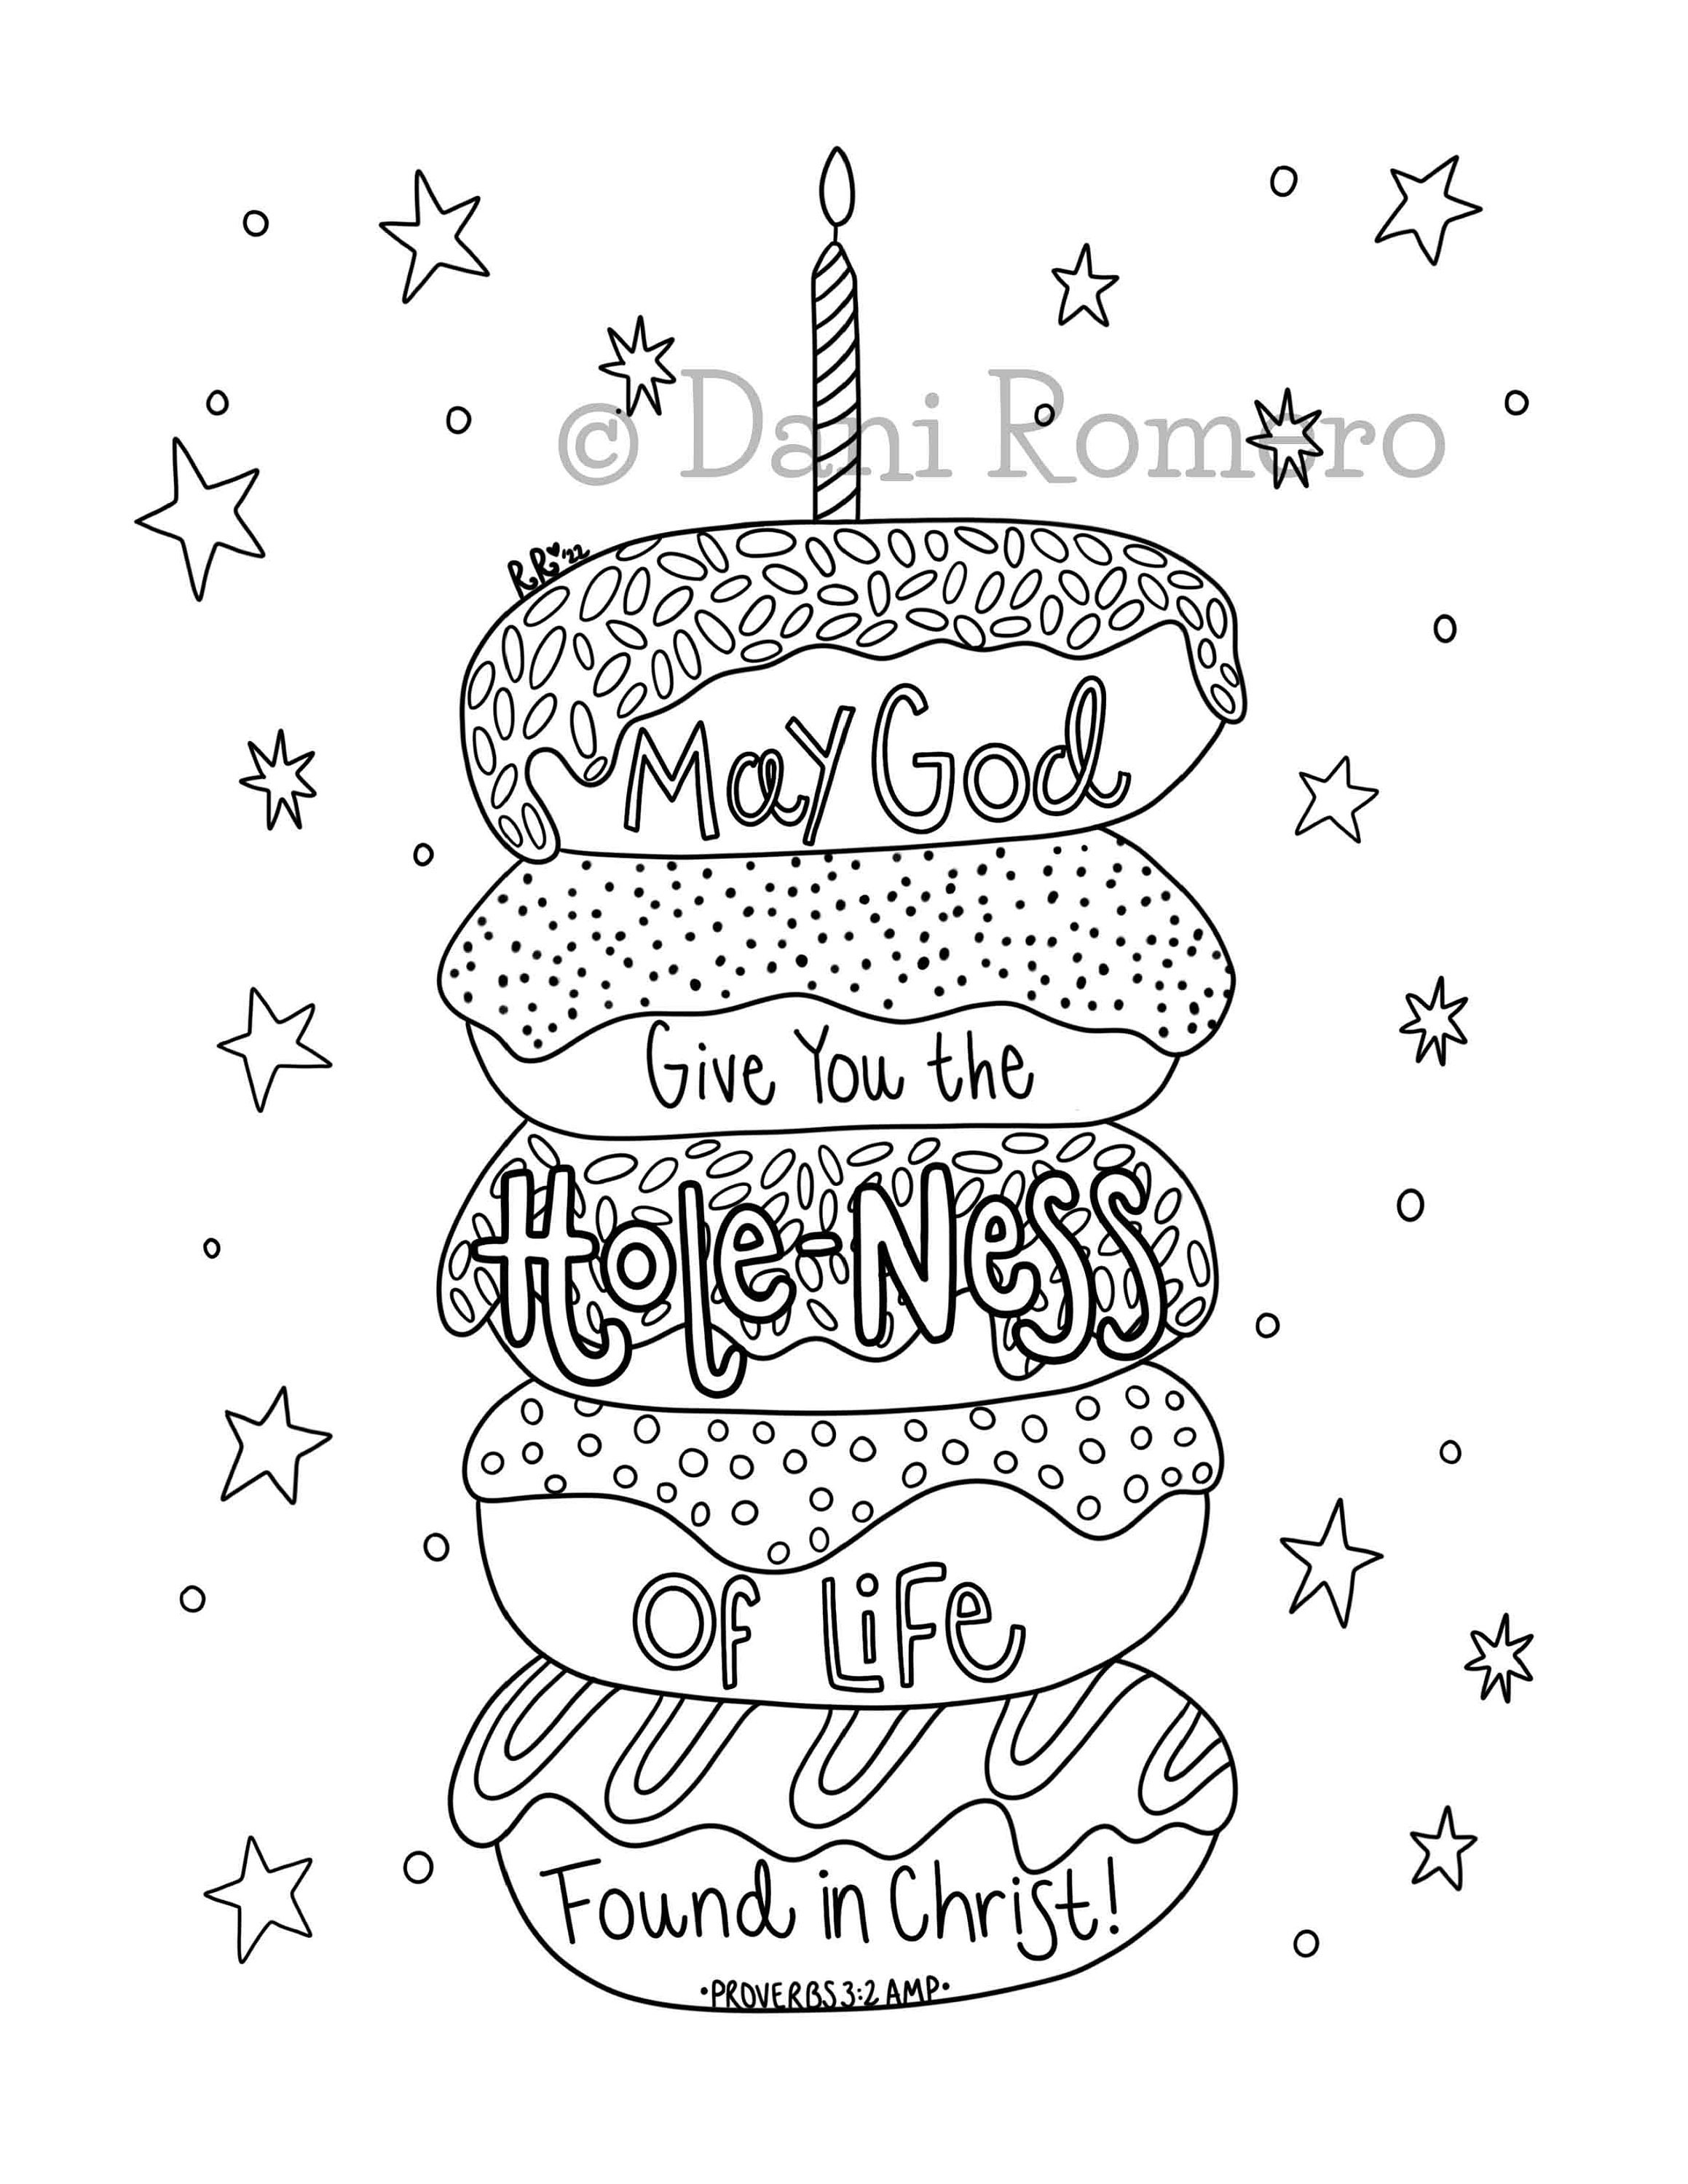 © Dani Romero
RR♥'22
May God
Give You the
Hole-Ness
Of Life
Found in Christ!
•PROVERBS 3:2 AMP•